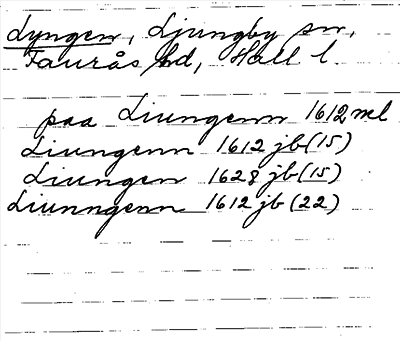 Lyngen, Ljungby sn,
Faurås hd, Hall l.
paa Liungenn 1612 ml
Liungenn 1612 jb (15)
Liungen 1628 jb (15)
Liunngenn 1612 jb (22)